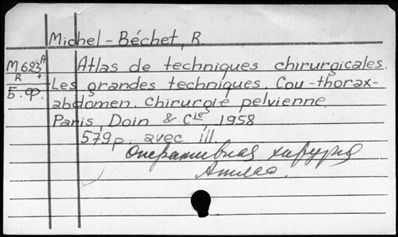 Michel-Béchet, R.
M 623
Atlas de techniques chirurgicales.
Les grandes techniques. Cou-thorax-
abdomen. chirurgie pelvienne.
Paris, Doin & Cie 1958
579p. avec ill
Оперативная хирургия
Атлас.